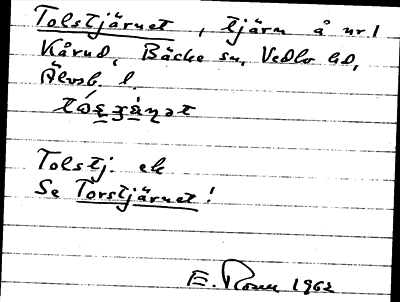 Tolstjärnet, tjärn å nr 1
Kårud, Bäcke sn, Vedbo hd,
Älvsb. l.
Tolstj. ek
Se Torstjärnet!
E. Rosen 1962